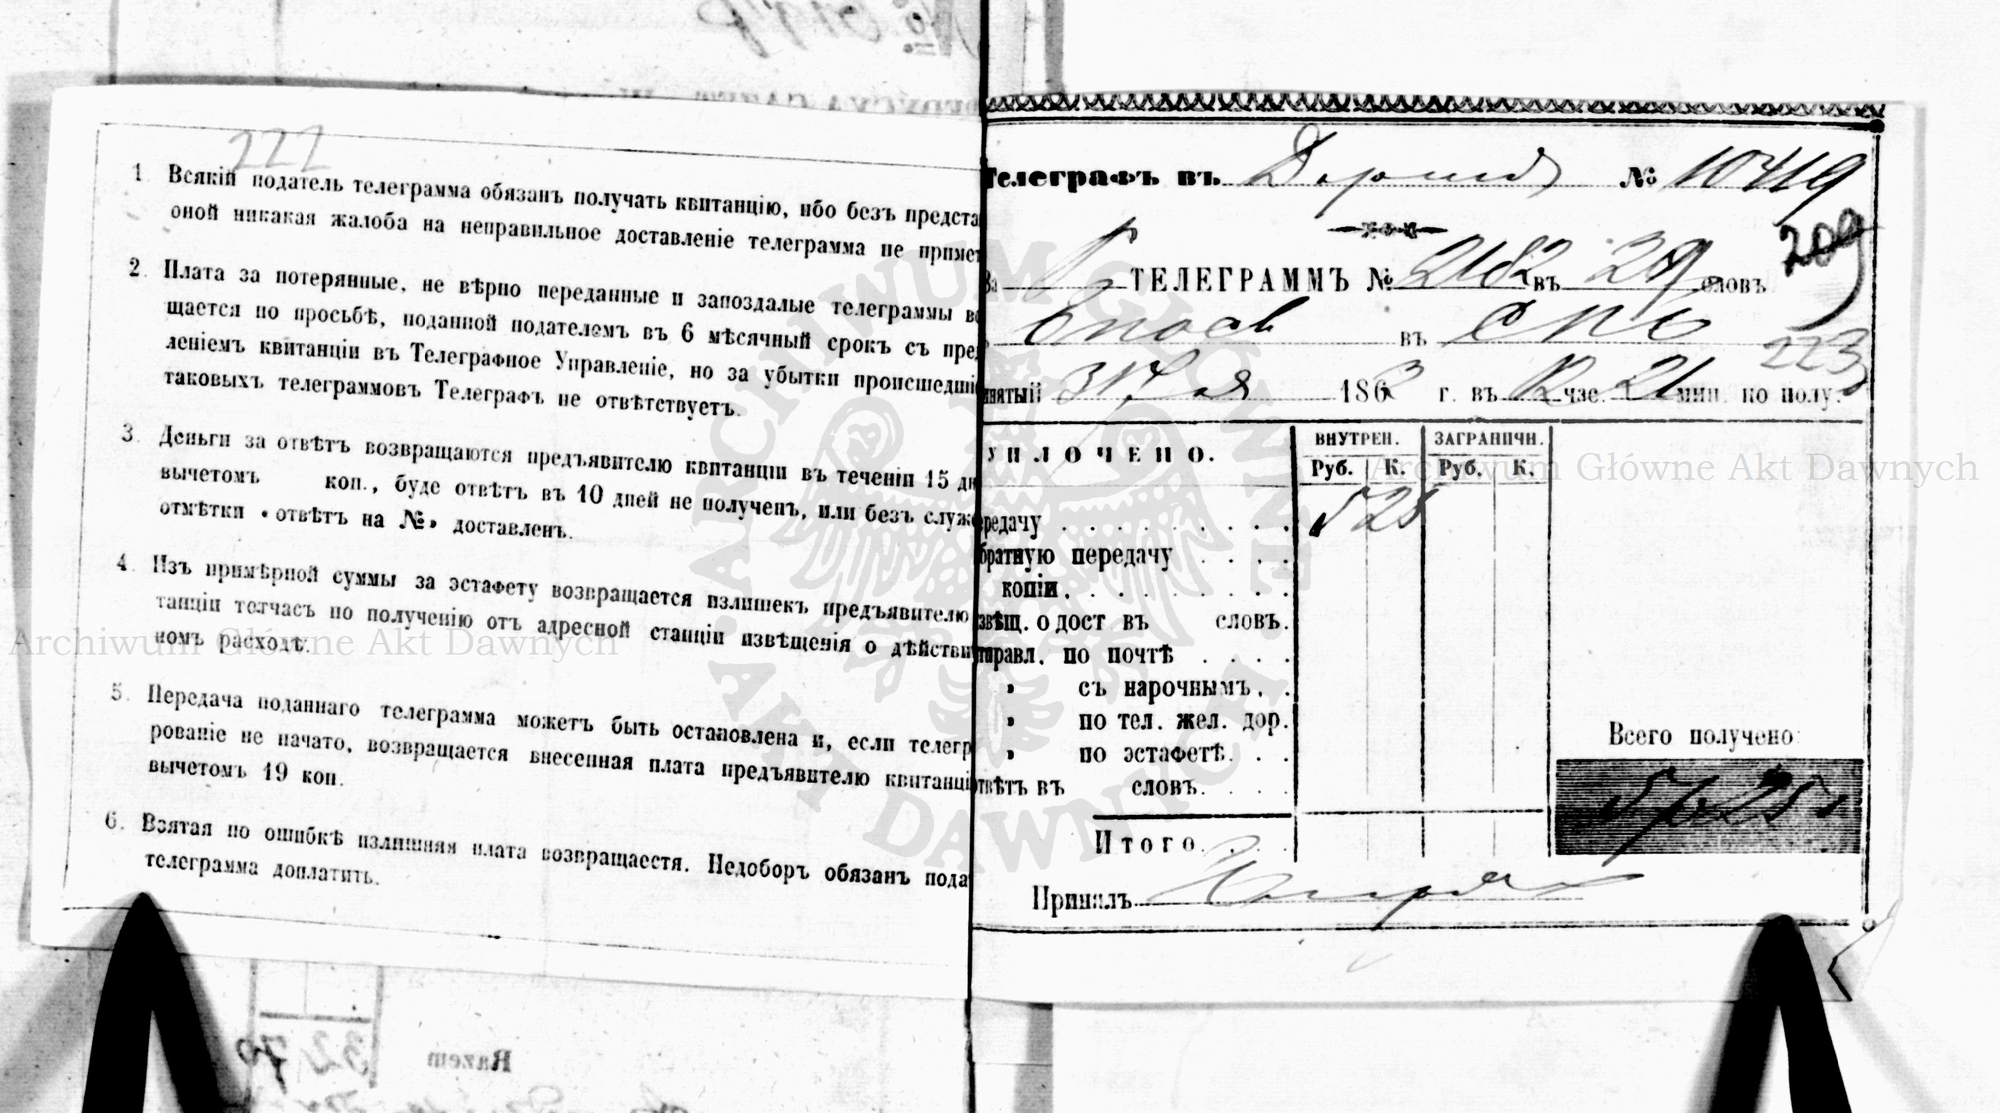 222
1. Всякій податель телеграмма обязанъ получать квитанцію, ибо безъ предста
оной никакая жалоба на неправильное доставленіе телеграмма не примет
2. Плата за потерянные, не вѣрно переданные и запоздалые телеграммы во
щается по просьбѣ, поданной подателемъ въ 6 мѣсячный срокъ съ пред
леніемъ квитанціи въ Телеграфное Управленіе, но за убытки происшедшіе
таковыхъ телеграммовъ Телеграфъ не отвѣтствуетъ.
3. Деньги за отвѣтъ возвращаются предъявителю квитанціи въ теченіи 15 дн
вычетомъ коп., буде отвѣтъ въ 10 дней не полученъ, или безъ служе
отмѣтки «отвѣтъ на №» доставленъ.
4. Изъ примѣрной суммы за эстафету возвращается излишекъ предъявителю
танціи тотчасъ по полученію отъ адресной станціи извѣщенія о дѣйстви
номъ расходѣ.
5. Передача поданнаго телеграмма можетъ быть остановлена и, если телегр
рованіе не начато, возвращается внесенная плата предъявителю квитанці
вычетомъ 19 коп.
6. Взятая по ошибкѣ излишняя плата возвращается. Недоборъ обязанъ пода
телеграмма доплатить.
Телеграфъ въ № 10419
209
За ТЕЛЕГРАММЪ № 2182 въ 29 словъ
въ СПб
223
инятый 31 1863 г. въ 12 час. 21 мин. по полу.
УПЛОЧЕНО. ВНУТРЕН. ЗАГРАНИЧН.
Руб. К. Руб. К.
редачу 5 25
братную передачу
копіи.
звѣщ. о дост. въ словъ.
тправл. по почтѣ
» съ нарочнымъ.
» по тел. жел. дор.
» по эстафетѣ.
твѣтъ въ словъ.
Всего получено:
5 р 25
Итого.
Принялъ
Razem
32 70
Archiwum Główne Akt Dawnych
Archiwum Główne Akt Dawnych
ARCHIWUM GŁÓWNE AKT DAWNYCH